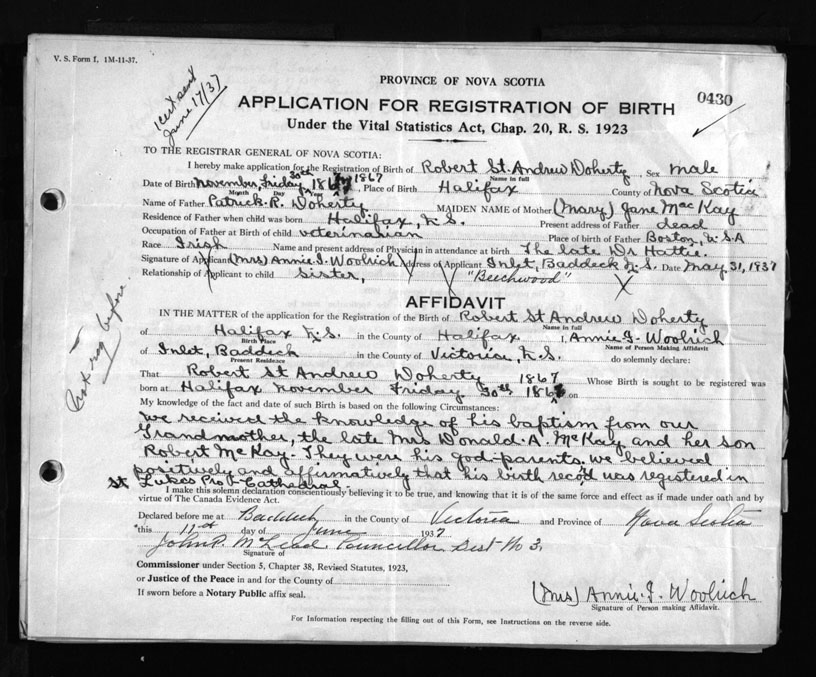 V. S. Form 1, 1M-11-37.
Cert sent
June 17/37
PROVINCE OF NOVA SCOTIA
APPLICATION FOR REGISTRATION OF BIRTH
0430
Under the Vital Statistics Act, Chap. 20, R. S. 1923
TO THE REGISTRAR GENERAL OF NOVA SCOTIA:
I hereby make application for the Registration of Birth of Robert St. Andrew Doherty Sex male
Name in full
Date of Birth November, Friday 30th 1867, Place of Birth Halifax County of Nova Scotia
Month Day Year
Name of Father Patrick. R. Doherty MAIDEN NAME of Mother (Mary) Jane MacKay
Residence of Father when child was born Halifax, N.S. Present address of Father dead
Occupation of Father at Birth of child veterinarian Place of birth of Father Boston, U.S.A
Race Irish Name and present address of Physician in attendance at birth The late Dr Hattie.
Signature of Applicant (Mrs) Annie. I. Woolrich Address of Applicant Inlet, Baddeck N.S. Date May 31, 1937
Relationship of Applicant to child Sister, "Beechwood" X
AFFIDAVIT
IN THE MATTER of the application for the Registration of the Birth of Robert St Andrew Doherty
Name in full
of Halifax N.S. in the County of Halifax I, Annie I. Woolrich
Birth Place Name of Person Making Affidavit
of Inlet, Baddeck in the County of Victoria, N.S. do solemnly declare:
Present Residence
That Robert St Andrew Doherty 1867 Whose Birth is sought to be registered was
born at Halifax November Friday 30th, 186 on
My knowledge of the fact and date of such Birth is based on the following Circumstances:
We received the knowledge of his baptism from our
Grandmother, the late Mrs Donald. A. McKay and her son
Robert McKay. They were his god-parents. We believed
positively and affirmatively that his birth record was registered in
St Lukes Pro-Cathedral.
I make this solemn declaration conscientiously believing it to be true, and knowing that it is of the same force and effect as if made under oath and by
virtue of The Canada Evidence Act.
Declared before me at Baddeck in the County of Victoria and Province of Nova Scotia
*this 12th day of June 1937
John P. McLeod Councillor Dist No 3.
Signature of
Commissioner under Section 5, Chapter 38, Revised Statutes, 1923,
or Justice of the Peace in and for the County of
If sworn before a Notary Public affix seal.
(Mrs) Annie. I. Woolrich
Signature of Person making Affidavit.
For Information respecting the filling out of this Form, see Instructions on the reverse side.
Not reg before